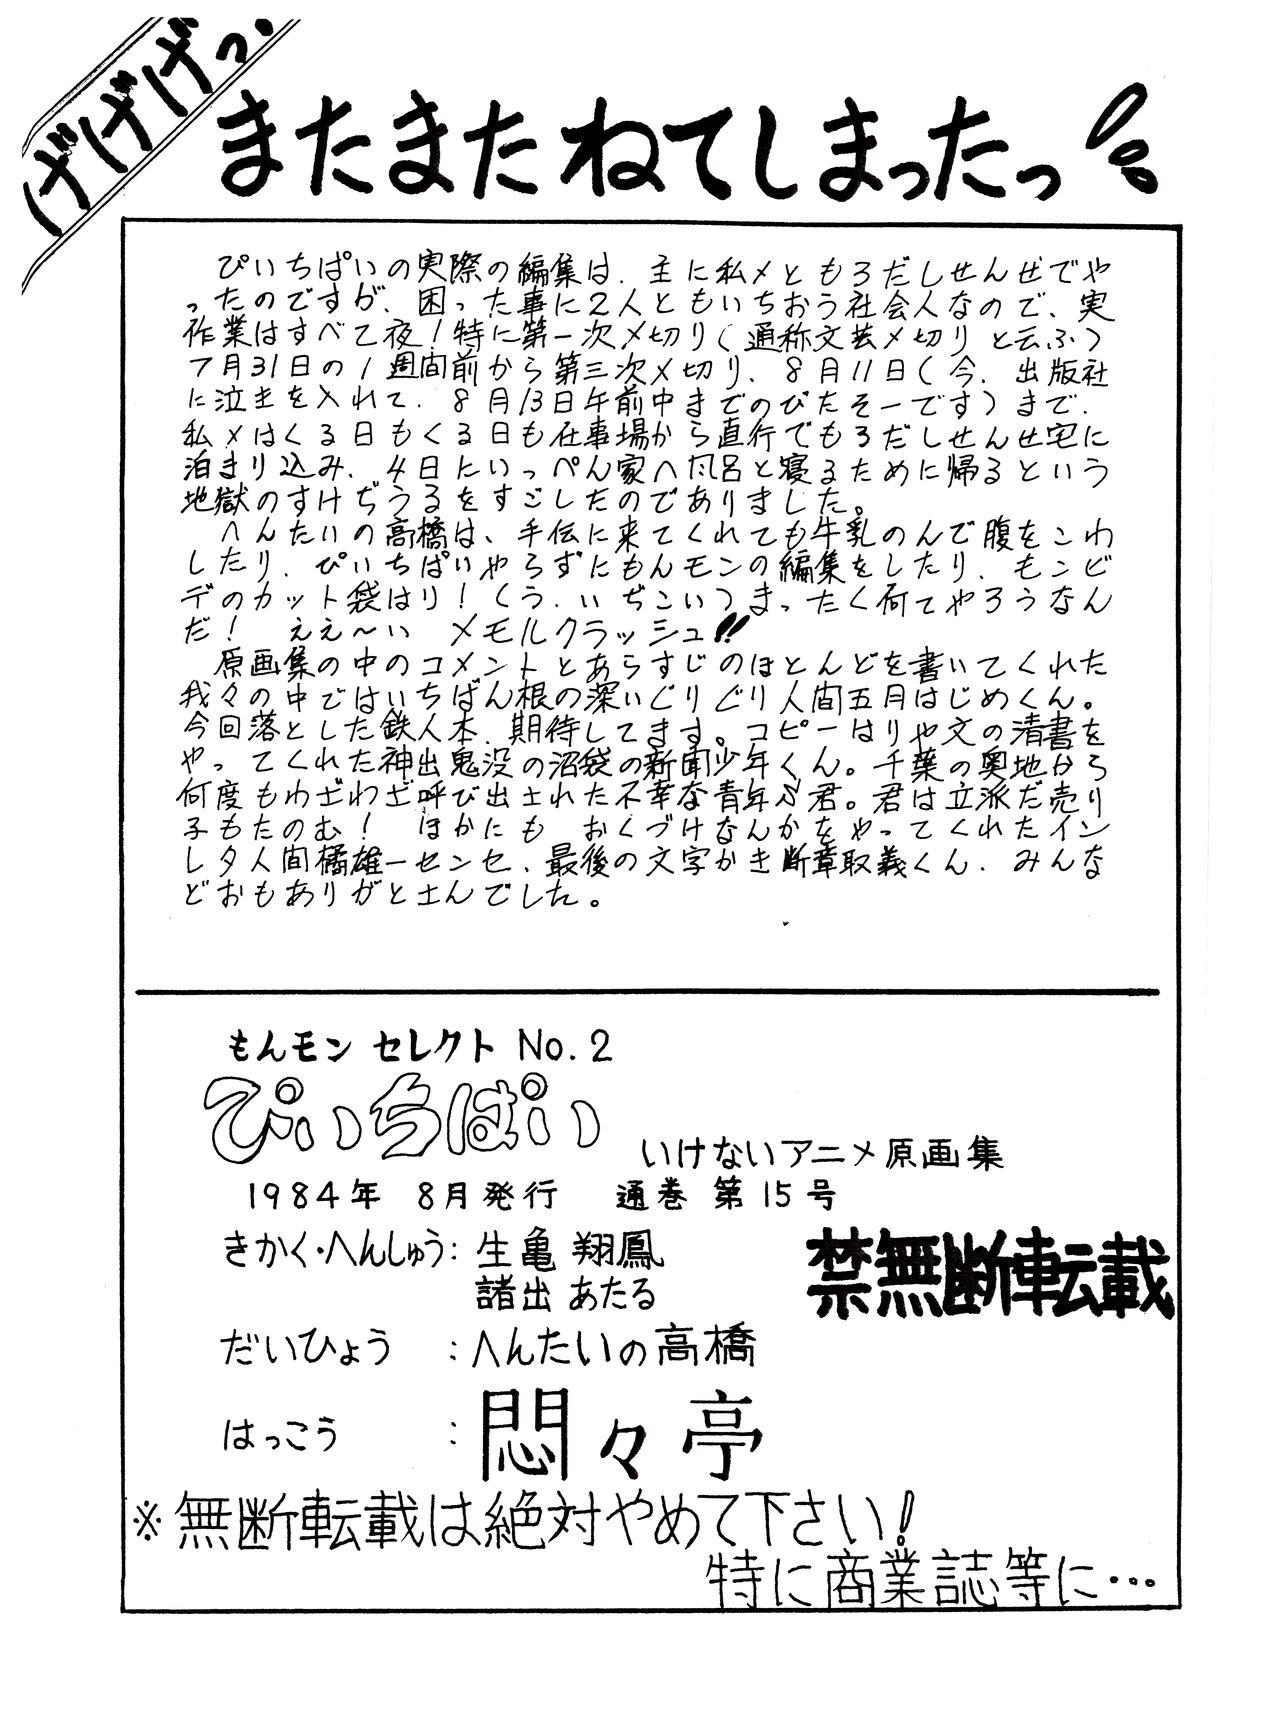 げげげっ、
またまたねてしまったっ
ぴいちぱいの実際の編集は、主に私メともろだしせんせでや
ったのですが、困った事に2人ともいちおう社会人なので、実
作業はすべて夜!特に第一次〆切り(通称文芸〆切りと云ふ)
7月31日の1週間前から第三次〆切り、8月11日(今、出版社
に泣を入れて、8月13日午前中までのびたそーです)まで、
私メはくる日もくる日も仕事場から直行でもろだしせんせ宅に
泊まり込み、4日にいっぺん家へ風呂と寝るために帰るという
地獄のすけぢうるをすごしたのでありました。
へんたいの高橋は、手伝に来てくれても牛乳のんで腹をこわ
したり、ぴいちぱいやらずにもんモンの編集をしたり、モンビ
デのカット袋はり!くう、いぢこいつまったく何てやろうなん
だ! ええ〜い メモルクラッシュ!!
原画集の中のコメントとあらすじのほとんどを書いてくれた
我々の中ではいちばん根の深いぐりぐり人間五月はじめくん。
今回落とした鉄人本、期待してます。コピーはりや文の清書を
やってくれた神出鬼没の沼袋の新聞少年くん。千葉の奥地から
何度もわざわざ呼び出された不幸な青年ぷ君。君は立派だ売り
子もたのむ! ほかにも おくづけなんかをやってくれたイン
レタ人間橘雄一センセ、最後の文字かき断章取義くん、みんな
どおもありがとさんでした。
もんモン セレクト No.2
ぴいちぱい
いけないアニメ原画集
1984年 8月発行 通巻 第15号
きかく・へんしゅう: 生亀 翔鳳
諸出 あたる
禁無断転載
だいひょう :へんたいの高橋
はっこう : 悶々亭
※無断転載は絶対やめて下さい!
特に商業誌等に…